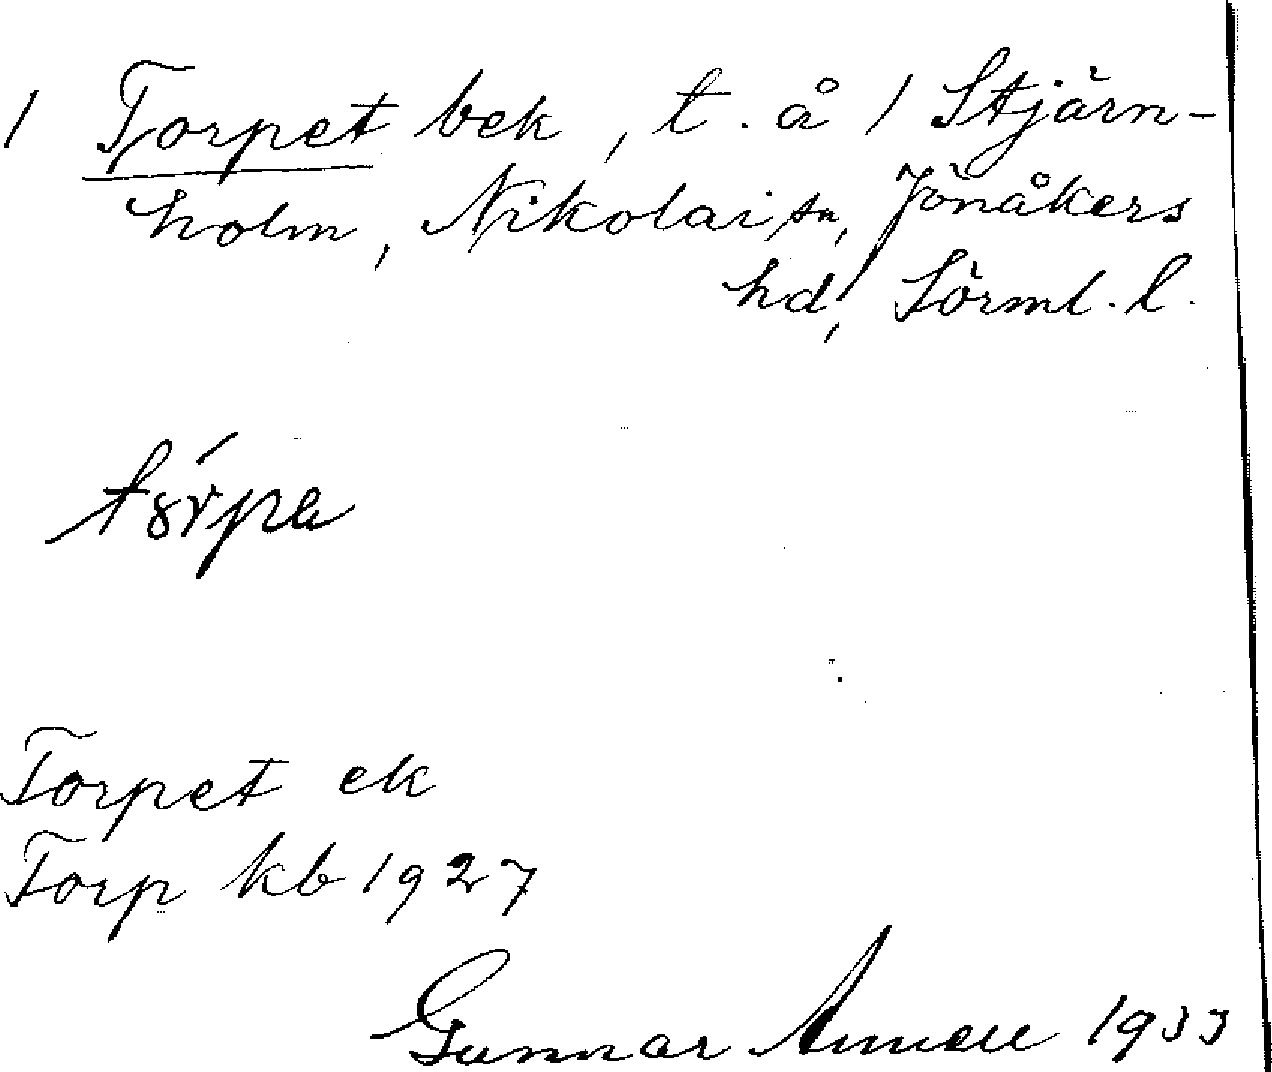 1 Torpet bek, t. å 1 Stjärn-
holm, Nikolai sn, Jönåkers
hd, Sörml. l.
Torpet ek
Torp kb 1927
Gunnar Annell 1933